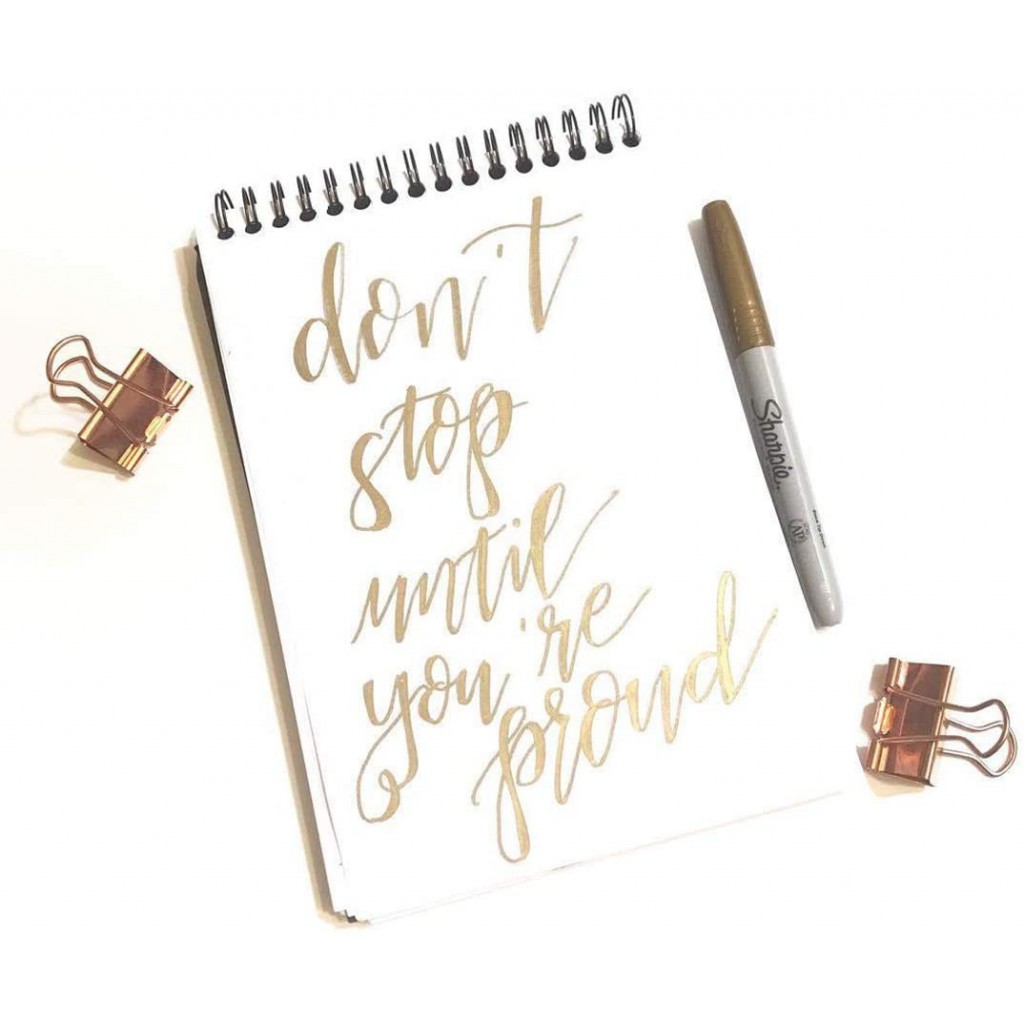 don't
stop
until
you're
proud
Sharpie.
AP